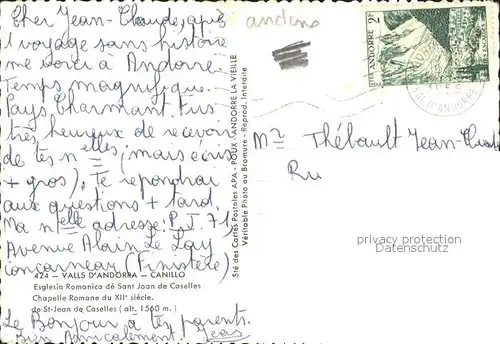 Cher Jean-Claude, après
l'voyage sans histoire
me voici à Andorre.
Temps magnifique.
Pays Charmant. Fus
très heureux de recevoir
de tes nelles (mais écris
+ gros). Te répondrai
aux questions + tard.
Ma nelle adresse: P.I. 71,
Avenue Alain Le Lay
Concarneau (Finistère)
424 - VALLS D'ANDORRA - CANILLO
Esglesia Romanica de Sant Joan de Caselles
Chapelle Romane du XIIe siècle.
de St-Jean de Caselles (alt. 1560 m.)
Le Bonjour à tes parents.
Bien Amicalement
Sté des Cartes Postales APA - POUX - ANDORRE LA VIEILLE
Véritable Photo au Bromure - Reprod. Interdite
andorra
ANDORRE 2F
VAL D'ANDORRE
Mr Thébault Jean-Claude
Ru
privacy protection
watermark